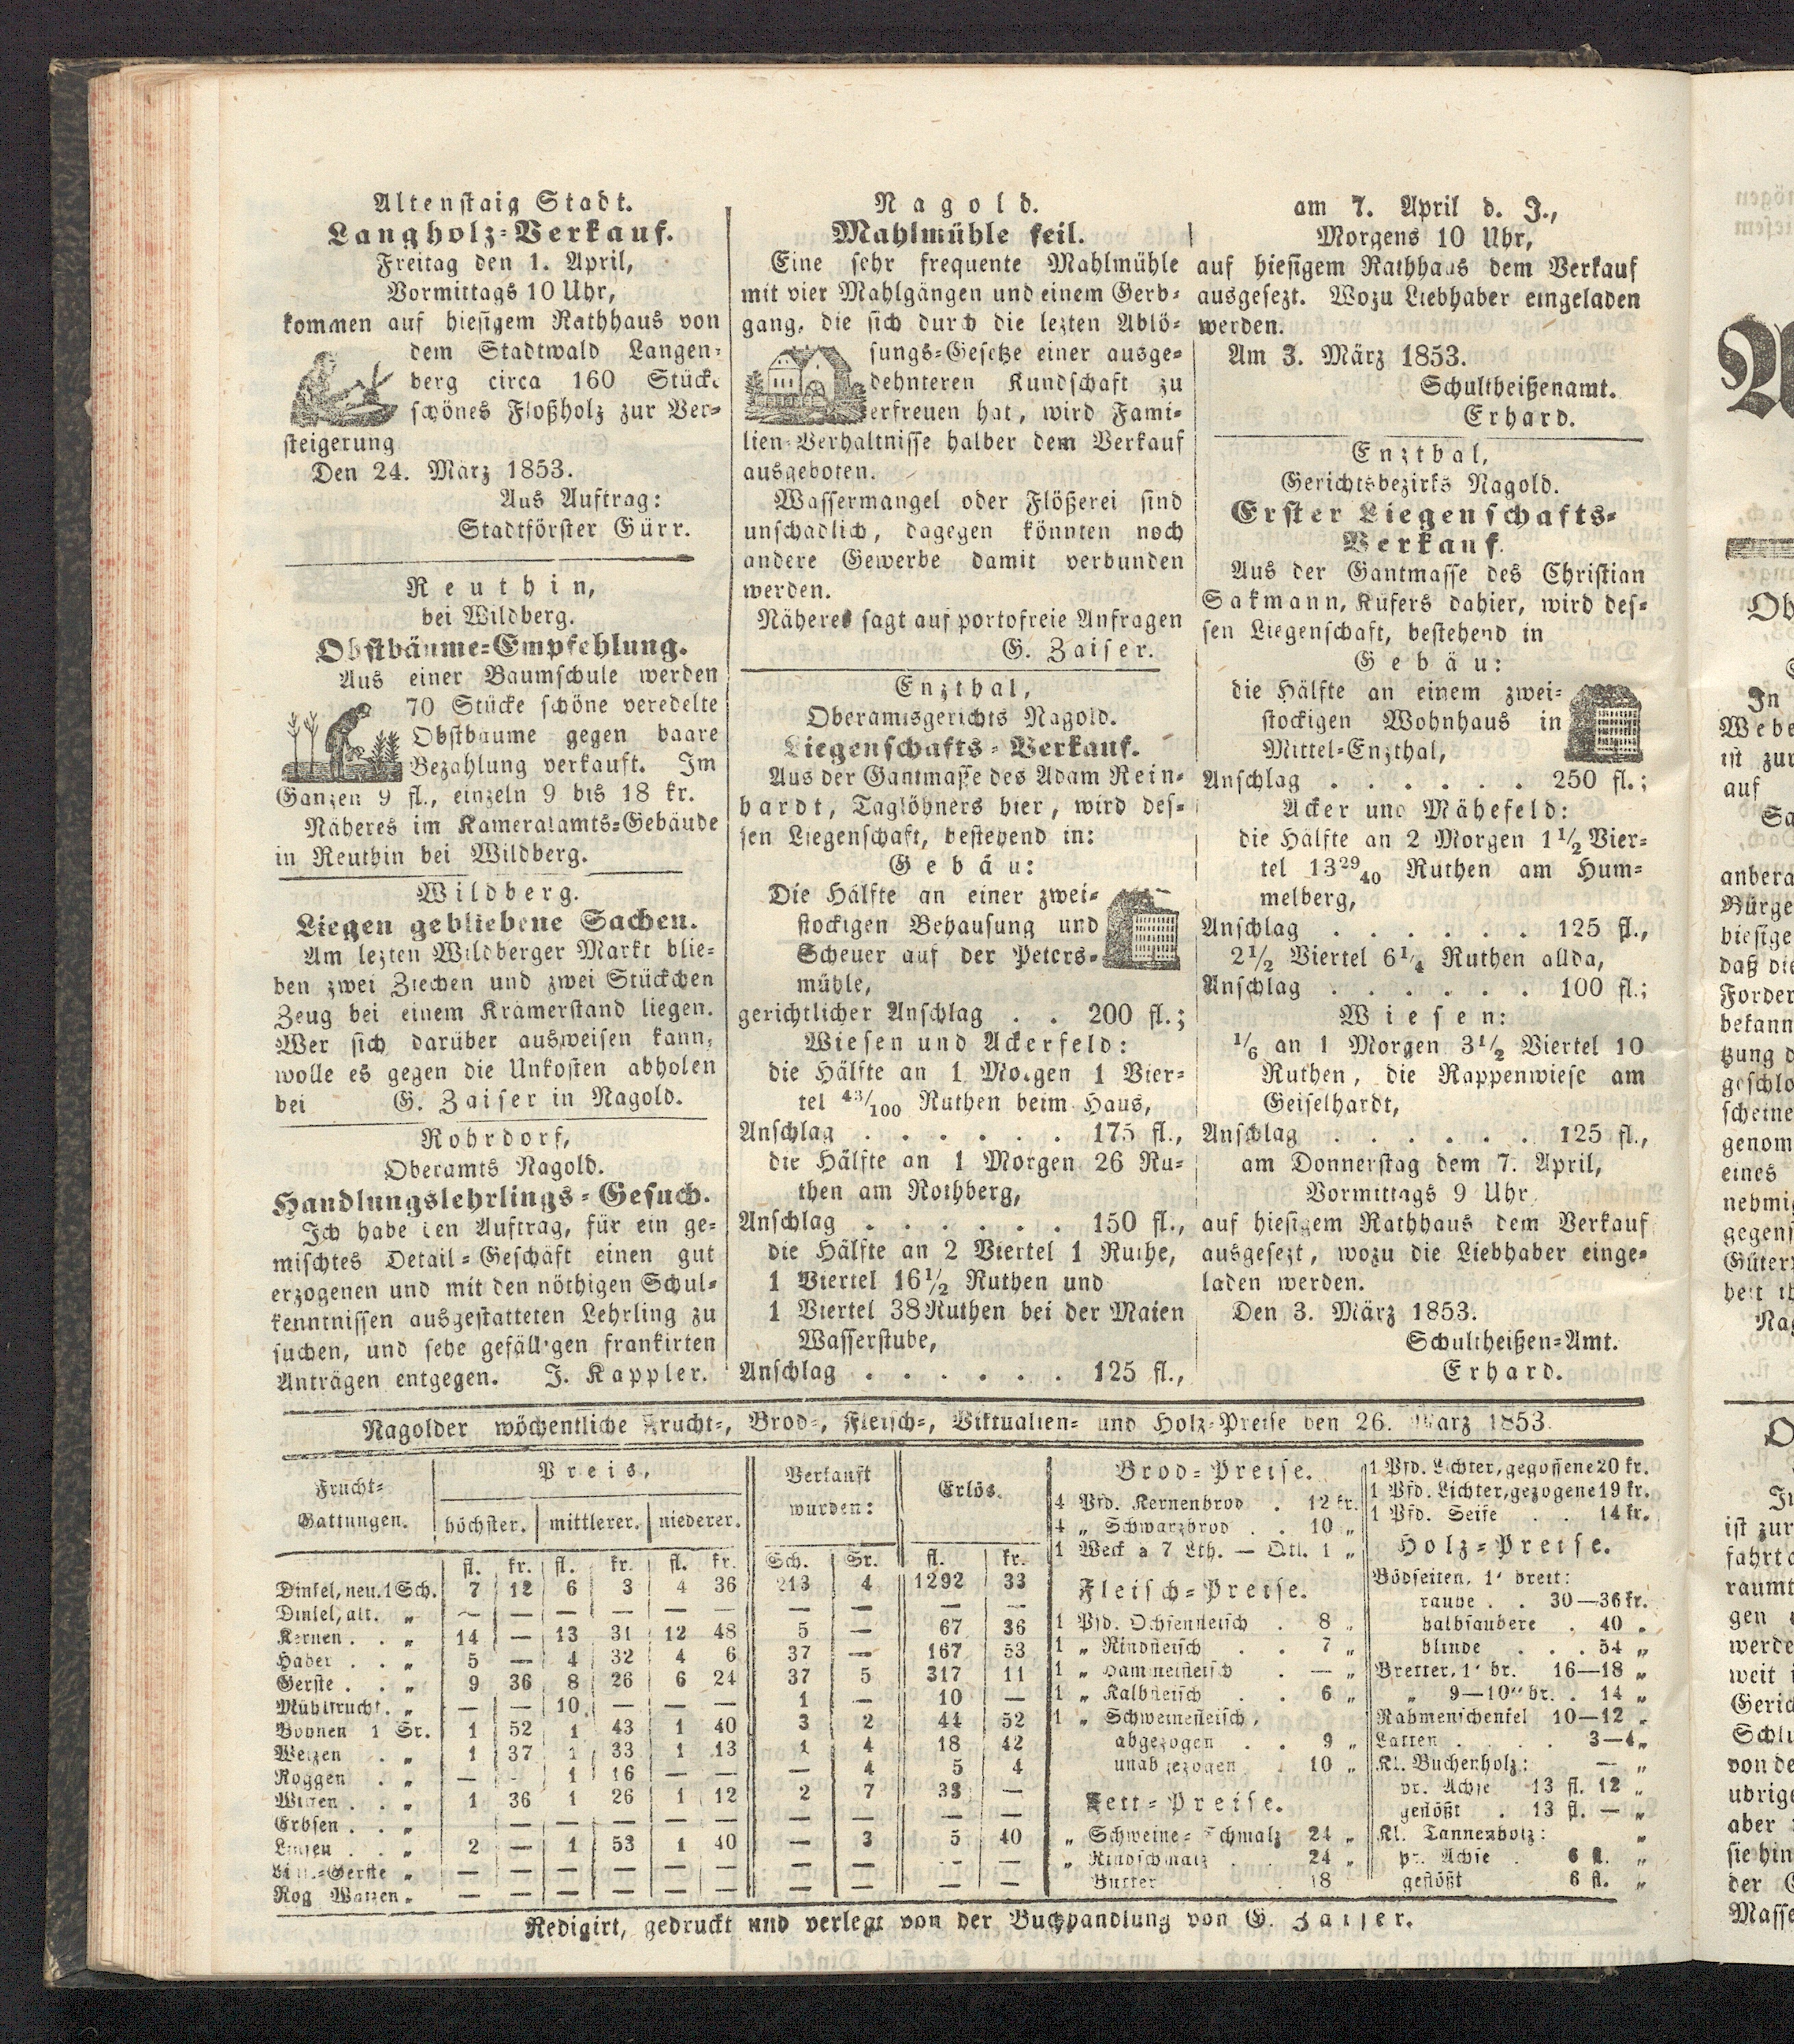 Altenstaig Stadt.
Langholz-Verkauf.
Freitag den 1. April,
Vormittags 10 Uhr,
kommen auf hiesigem Rathhaus von
dem Stadtwald Langen-
berg circa 160 Stücke
schönes Floßholz zur Ver-
steigerung
Den 24. März 1853.
Aus Auftrag:
Stadtförster Gürr.
Reuthin,
bei Wildberg.
Obstbäume-Empfehlung.
Aus einer Baumschule werden
70 Stücke schöne veredelte
Obstbäume gegen baare
Bezahlung verkauft. Im
Ganzen 9 fl., einzeln 9 bis 18 kr.
Näheres im Kameralamts-Gebäude
in Reuthin bei Wildberg.
Wildberg.
Liegen gebliebene Sachen.
Am lezten Wildberger Markt blie-
ben zwei Ziechen und zwei Stückchen
Zeug bei einem Krämerstand liegen.
Wer sich darüber ausweisen kann,
wolle es gegen die Unkosten abholen
bei G. Zaiser in Nagold.
Rohrdorf,
Oberamts Nagold.
Handlungslehrlings-Gesuch.
Ich habe den Auftrag, für ein ge-
mischtes Detail-Geschäft einen gut
erzogenen und mit den nöthigen Schul-
kenntnissen ausgestatteten Lehrling zu
suchen, und sehe gefälligen frankirten
Anträgen entgegen. J. Kappler.
Nagold.
Mahlmühle feil.
Eine sehr frequente Mahlmühle
mit vier Mahlgängen und einem Gerb-
gang, die sich durch die lezten Ablö-
sungs-Gesetze einer ausge-
dehnteren Kundschaft zu
erfreuen hat, wird Fami-
lien-Verhältnisse halber dem Verkauf
ausgeboten.
Wassermangel oder Flößerei sind
unschädlich, dagegen könnten noch
andere Gewerbe damit verbunden
werden.
Näheres sagt auf portofreie Anfragen
G. Zaiser.
Enzthal,
Oberamtsgerichts Nagold.
Liegenschafts-Verkauf.
Aus der Gantmasse des Adam Rein-
hardt, Taglöhners hier, wird des-
sen Liegenschaft, bestehend in:
Gebäu:
Die Hälfte an einer zwei-
stockigen Behausung und
Scheuer auf der Peters-
mühle,
gerichtlicher Anschlag . . 200 fl.;
Wiesen und Ackerfeld:
die Hälfte an 1 Morgen 1 Vier-
tel 43/100 Ruthen beim Haus,
Anschlag . . . . . . 175 fl.,
die Hälfte an 1 Morgen 26 Ru-
then am Rothberg,
Anschlag . . . . . . 150 fl.,
die Hälfte an 2 Viertel 1 Ruthe,
1 Viertel 16½ Ruthen und
1 Viertel 38 Ruthen bei der Maien
Wasserstube,
Anschlag . . . . . . 125 fl.,
am 7. April d. J.,
Morgens 10 Uhr,
auf hiesigem Rathhaus dem Verkauf
ausgesezt. Wozu Liebhaber eingeladen
werden.
Am 3. März 1853.
Schultheißenamt.
Erhard.
Enzthal,
Gerichtsbezirks Nagold.
Erster Liegenschafts-
Verkauf.
Aus der Gantmasse des Christian
Sakmann, Küfers dahier, wird des-
sen Liegenschaft, bestehend in
Gebäu:
die Hälfte an einem zwei-
stockigen Wohnhaus in
Mittel-Enzthal,
Anschlag . . . . . . 250 fl.;
Acker und Mähefeld:
die Hälfte an 2 Morgen 1½ Vier-
tel 13 29/40 Ruthen am Hum-
melberg,
Anschlag . . . . . . 125 fl.,
2½ Viertel 6¼ Ruthen allda,
Anschlag . . . . . . 100 fl.;
Wiesen:
1/6 an 1 Morgen 3½ Viertel 10
Ruthen, die Rappenwiese am
Geiselhardt,
Anschlag . . . . . . 125 fl.,
am Donnerstag dem 7. April,
Vormittags 9 Uhr
auf hiesigem Rathhaus dem Verkauf
ausgesezt, wozu die Liebhaber einge-
laden werden.
Den 3. März 1853.
Schultheißen-Amt.
Erhard.
Nagolder wöchentliche Frucht-, Brod-, Fleisch-, Viktualien- und Holz-Preise den 26. März 1853.
Frucht-Gattungen. Preis, Verkauft wurden: Erlös.
höchster. mittlerer. niederer.
fl. kr. fl. kr. fl. kr. Sch. Sr. fl. kr.
Dinkel, neu. 1 Sch. 7 12 6 3 4 36 213 4 1292 33
Dinkel, alt. „ — — — — — — — — — —
Kernen . . „ 14 — 13 31 12 48 5 — 67 36
Haber . . „ 5 — 4 32 4 6 37 — 167 53
Gerste . . „ 9 36 8 26 6 24 37 5 317 11
Mühlfrucht. „ — — 10 — — — 1 — 10 —
Bohnen 1 Sr. 1 52 1 43 1 40 3 2 44 52
Weizen . „ 1 37 1 33 1 13 1 4 18 42
Roggen . „ — — 1 16 — — — 4 5 4
Wicken . . „ 1 36 1 26 1 12 2 7 33 —
Erbsen . . „ — — — — — — — — —
Linsen . . „ 2 — 1 53 1 40 — 3 5 40
Lins.-Gerste „ — — — — — — — — — —
Rog Waizen „ — — — — — — — — — —
Brod-Preise.
4 Pfd. Kernenbrod . 12 kr.
4 „ Schwarzbrod . . 10 „
1 Weck à 7 Lth. — Qtl. 1 „
Fleisch-Preise.
1 Pfd. Ochsenfleisch . 8 „
1 „ Rindfleisch . . 7 „
1 „ Hammelfleisch . — „
1 „ Kalbfleisch . . 6 „
1 „ Schweinefleisch,
abgezogen . . 9 „
unabgezogen . 10 „
Fett-Preise.
„ Schweine-Schmalz 24 „
„ Rindschmalz . . 24 „
Butter . 18
1 Pfd. Lichter, gegossene 20 kr.
1 Pfd. Lichter, gezogene 19 kr.
1 Pfd. Seife . . 14 kr.
Holz-Preise.
Bödseiten, 1' breit:
rauhe . . 30—36 kr.
halbsaubere . 40 „
blinde . . . 54 „
Bretter, 1' br. 16—18 „
„ 9—10" br. . 14 „
Rahmenschenkel 10—12 „
Latten . . . . 3—4 „
Kl. Buchenholz: — „
pr. Achse 13 fl. 12 „
geflößt . 13 fl. — „
Kl. Tannenholz: „
pr. Achse . 6 fl. „
geflößt 6 fl. „
Redigirt, gedruckt und verlegt von der Buchhandlung von G. Zaiser.